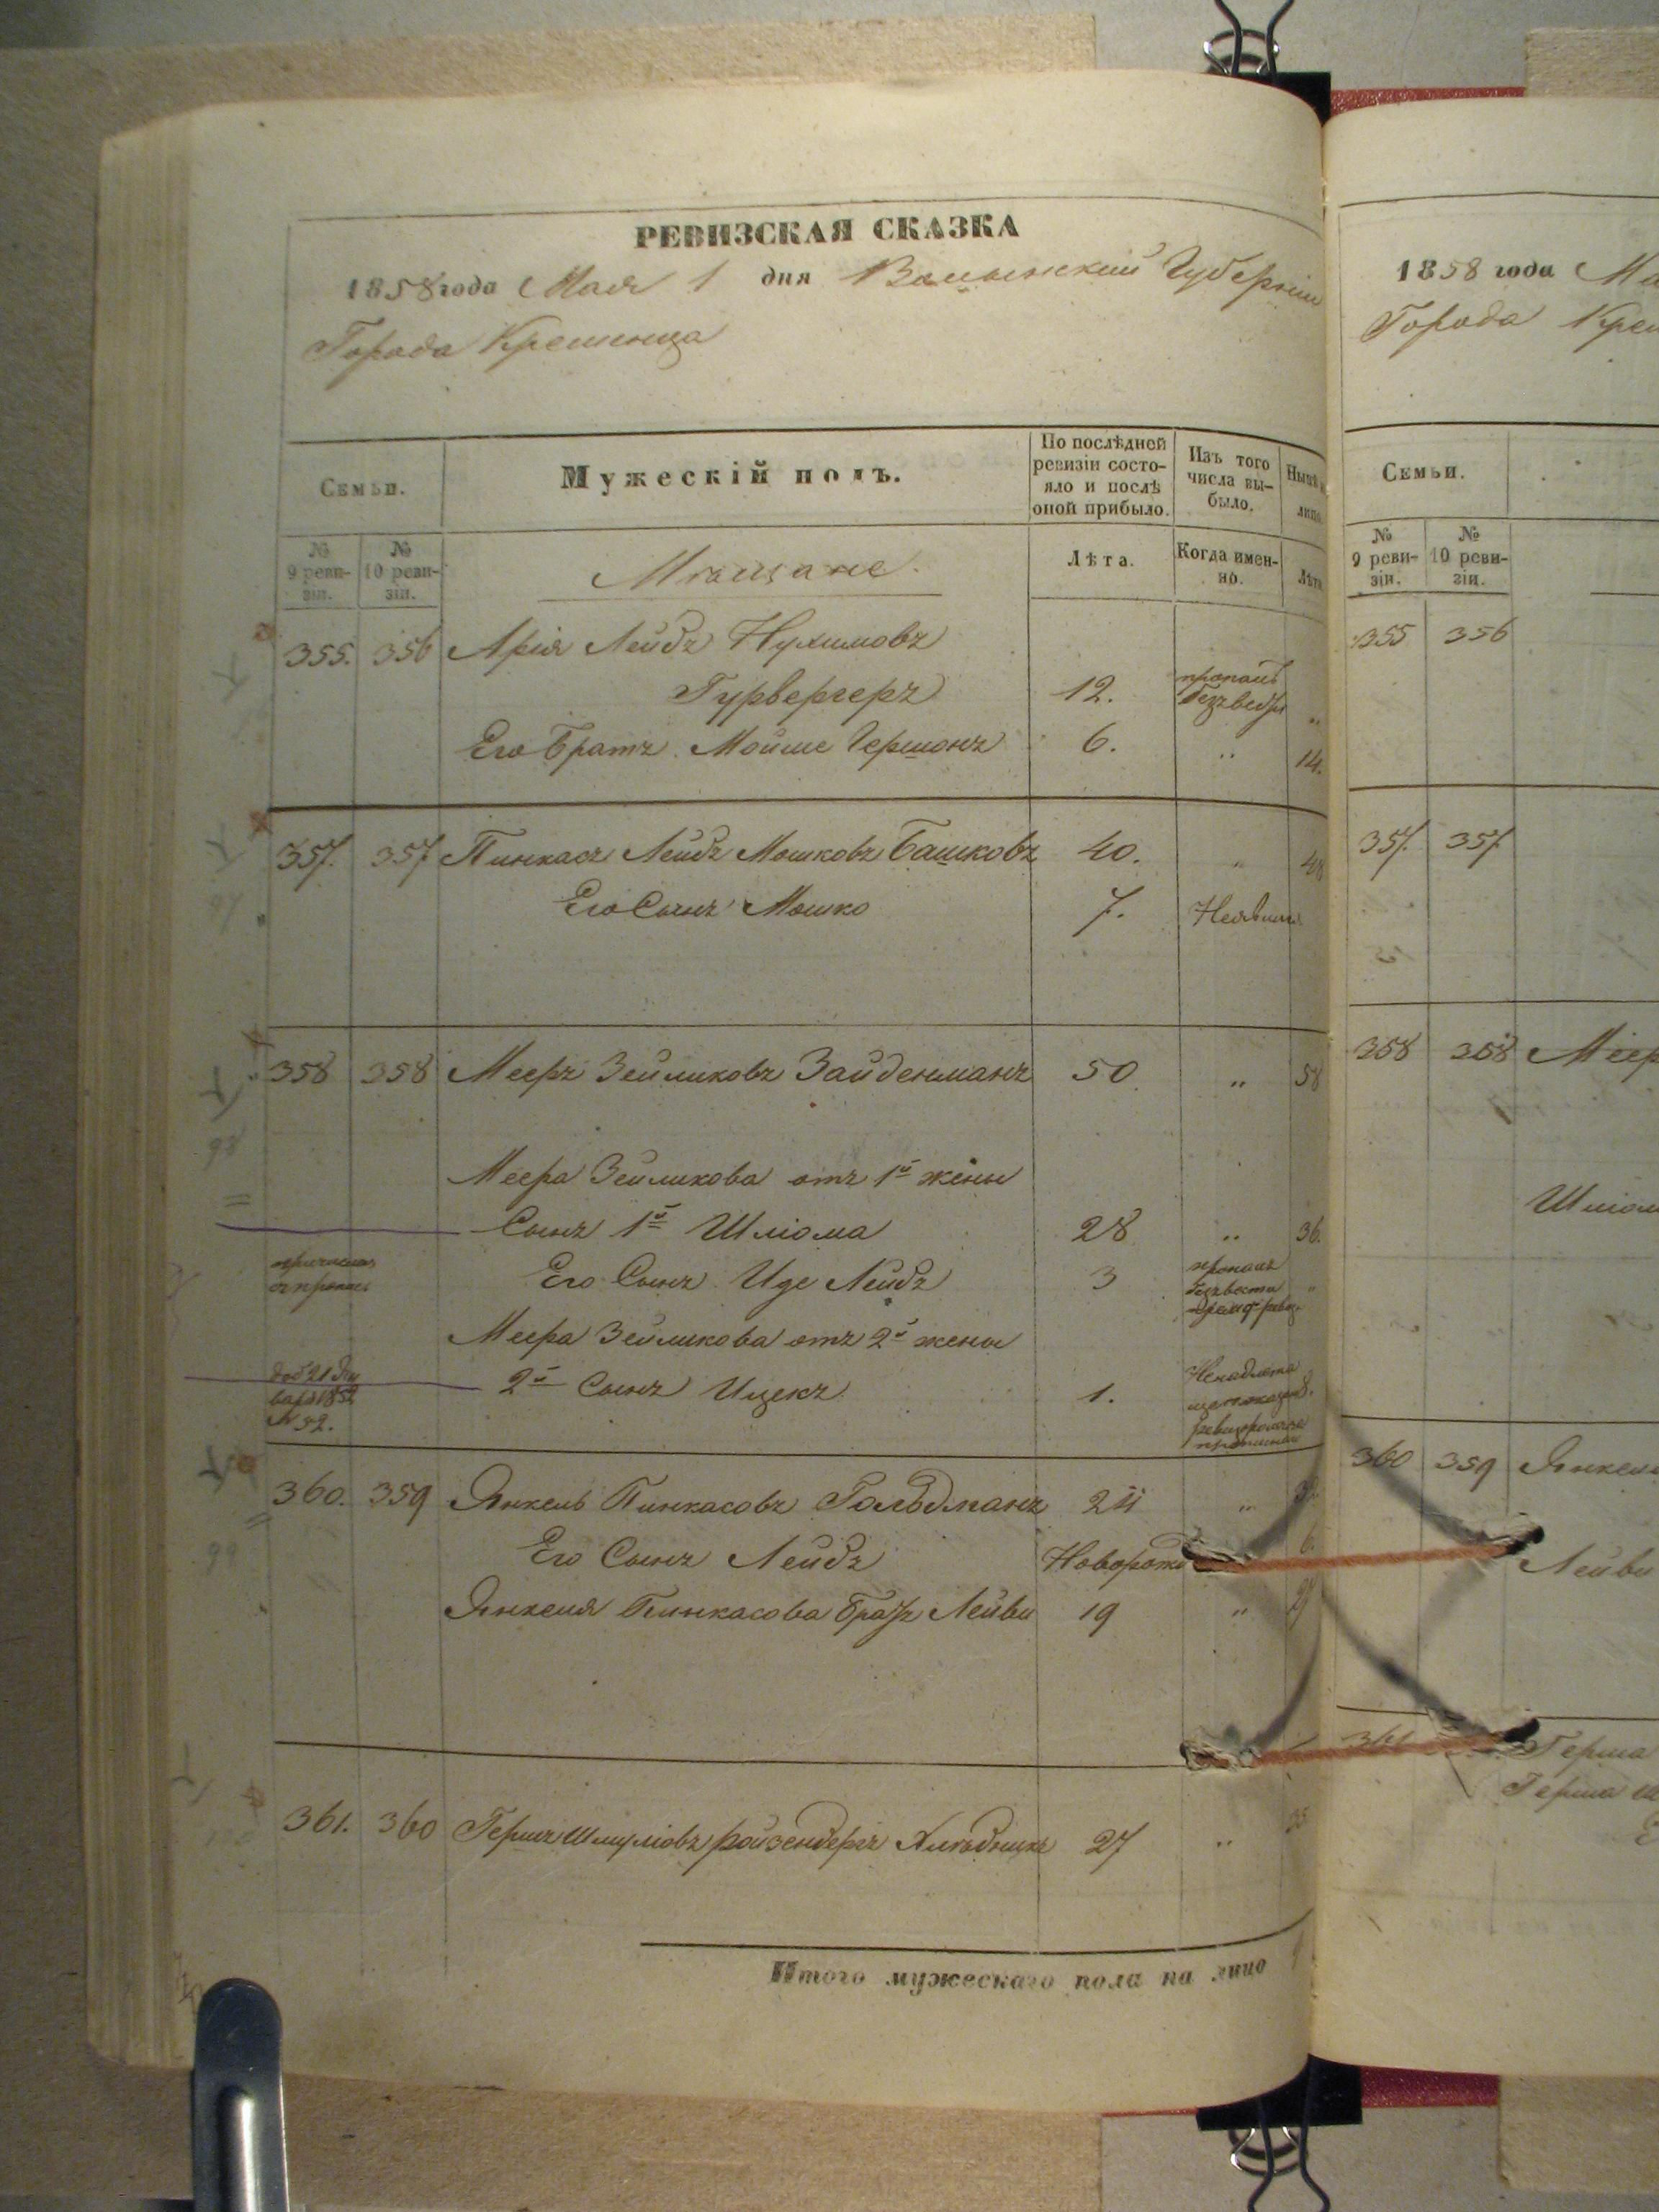 РЕВИЗСКАЯ СКАЗКА
1858 года Мая 1 дня Волынскій Губерніи
Города Кременца
Семьи.
Мужескій полъ.
По послѣдней ревизіи состояло и послѣ оной прибыло.
Изъ того числа выбыло.
Нынѣ
лицо
№ 9 ревизіи.
№ 10 ревизіи.
Мѣщане.
Лѣта.
Когда именно.
Лѣта
355. 356 Арія Лейбъ Нухимовъ
Гурвергеръ 12. пропалъ безъ вѣсти „
Его Братъ Мойше Гершонъ 6. „ 14.
357. 357 Пинкасъ Лейбъ Мошковъ Башковъ 40. „ 48
Его Сынъ Мошко 7.
358 358 Мееръ Зейликовъ Зайденманъ 50 „ 58
Меера Зейликова отъ 1й жены
Сынъ 1й Шліома 28 „ 36.
Его Сынъ Иде Лейбъ 3 пропалъ безъ вести „
Меера Зейликова отъ 2й жены
2й Сынъ Ицекъ 1.
360. 359 Янкель Пинкасовъ Гольдманъ 24 „
Его Сынъ Лейбъ Новорожд 6.
Янкеля Пинкасова братъ Лейви 19 „
361. 360 Гершъ Шмуліовъ Ройзенбергъ 27 „
Итого мужескаго пола на лицо
1858 года Ма
Города Крем
Семьи.
№ 9 ревизіи.
№ 10 ревизіи.
355 356
357. 357
358 358 Меер
Шліом
360 359 Янкел
Лейви
361 Герша
Герша